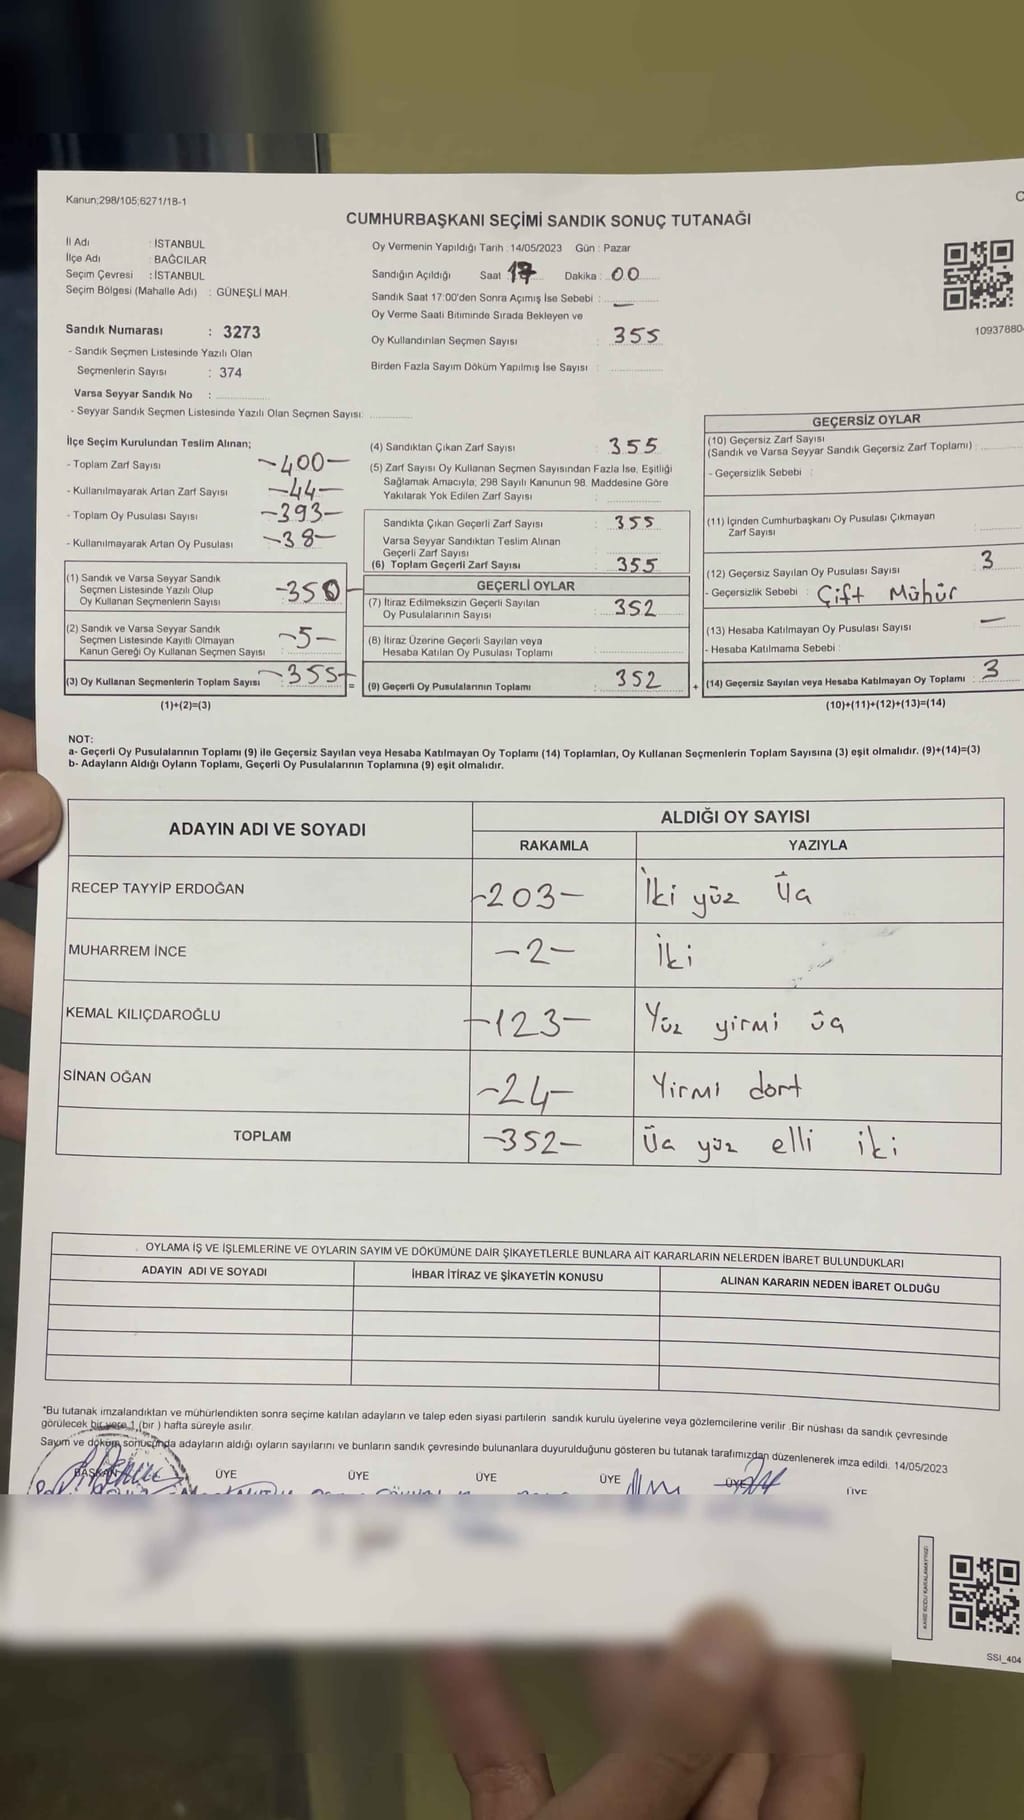 Kanun;298/105;6271/18-1
CUMHURBAŞKANI SEÇİMİ SANDIK SONUÇ TUTANAĞI
İl Adı : İSTANBUL
İlçe Adı : BAĞCILAR
Seçim Çevresi : İSTANBUL
Seçim Bölgesi (Mahalle Adı) : GÜNEŞLİ MAH.
Sandık Numarası : 3273
- Sandık Seçmen Listesinde Yazılı Olan
Seçmenlerin Sayısı : 374
Varsa Seyyar Sandık No :
- Seyyar Sandık Seçmen Listesinde Yazılı Olan Seçmen Sayısı:
Oy Vermenin Yapıldığı Tarih : 14/05/2023 Gün : Pazar
Sandığın Açıldığı Saat : 17 Dakika : 00
Sandık Saat 17:00'den Sonra Açımış İse Sebebi : —
Oy Verme Saati Bitiminde Sırada Bekleyen ve
Oy Kullandırılan Seçmen Sayısı : 355
Birden Fazla Sayım Döküm Yapılmış İse Sayısı :
10937880-
İlçe Seçim Kurulundan Teslim Alınan;
- Toplam Zarf Sayısı -400-
- Kullanılmayarak Artan Zarf Sayısı -44-
- Toplam Oy Pusulası Sayısı -393-
- Kullanılmayarak Artan Oy Pusulası -38-
(1) Sandık ve Varsa Seyyar Sandık
Seçmen Listesinde Yazılı Olup
Oy Kullanan Seçmenlerin Sayısı -350-
(2) Sandık ve Varsa Seyyar Sandık
Seçmen Listesinde Kayıtlı Olmayan
Kanun Gereği Oy Kullanan Seçmen Sayısı : -5-
(3) Oy Kullanan Seçmenlerin Toplam Sayısı : -355-
(1)+(2)=(3)
(4) Sandıktan Çıkan Zarf Sayısı : 355
(5) Zarf Sayısı Oy Kullanan Seçmen Sayısından Fazla İse, Eşitliği
Sağlamak Amacıyla; 298 Sayılı Kanunun 98. Maddesine Göre
Yakılarak Yok Edilen Zarf Sayısı :
Sandıkta Çıkan Geçerli Zarf Sayısı : 355
Varsa Seyyar Sandıktan Teslim Alınan
Geçerli Zarf Sayısı :
(6) Toplam Geçerli Zarf Sayısı : 355
GEÇERLİ OYLAR
(7) İtiraz Edilmeksizin Geçerli Sayılan
Oy Pusulalarının Sayısı : 352
(8) İtiraz Üzerine Geçerli Sayılan veya
Hesaba Katılan Oy Pusulası Toplamı :
= (9) Geçerli Oy Pusulalarının Toplamı : 352 +
GEÇERSİZ OYLAR
(10) Geçersiz Zarf Sayısı
(Sandık ve Varsa Seyyar Sandık Geçersiz Zarf Toplamı) :
- Geçersizlik Sebebi :
(11) İçinden Cumhurbaşkanı Oy Pusulası Çıkmayan
Zarf Sayısı :
(12) Geçersiz Sayılan Oy Pusulası Sayısı : 3
- Geçersizlik Sebebi : Çift Mühür
(13) Hesaba Katılmayan Oy Pusulası Sayısı : —
- Hesaba Katılmama Sebebi :
(14) Geçersiz Sayılan veya Hesaba Katılmayan Oy Toplamı : 3
(10)+(11)+(12)+(13)=(14)
NOT:
a- Geçerli Oy Pusulalarının Toplamı (9) ile Geçersiz Sayılan veya Hesaba Katılmayan Oy Toplamı (14) Toplamları, Oy Kullanan Seçmenlerin Toplam Sayısına (3) eşit olmalıdır. (9)+(14)=(3)
b- Adayların Aldığı Oyların Toplamı, Geçerli Oy Pusulalarının Toplamına (9) eşit olmalıdır.
ADAYIN ADI VE SOYADI ALDIĞI OY SAYISI
RAKAMLA YAZIYLA
RECEP TAYYİP ERDOĞAN -203- İki yüz üç
MUHARREM İNCE -2- İki
KEMAL KILIÇDAROĞLU -123- Yüz yirmi üç
SİNAN OĞAN -24- Yirmi dört
TOPLAM -352- Üç yüz elli iki
OYLAMA İŞ VE İŞLEMLERİNE VE OYLARIN SAYIM VE DÖKÜMÜNE DAİR ŞİKAYETLERLE BUNLARA AİT KARARLARIN NELERDEN İBARET BULUNDUKLARI
ADAYIN ADI VE SOYADI İHBAR İTİRAZ VE ŞİKAYETİN KONUSU ALINAN KARARIN NEDEN İBARET OLDUĞU
*Bu tutanak imzalandıktan ve mühürlendikten sonra seçime katılan adayların ve talep eden siyasi partilerin sandık kurulu üyelerine veya gözlemcilerine verilir .Bir nüshası da sandık çevresinde
görülecek bir yere 1 (bir ) hafta süreyle asılır.
Sayım ve döküm sonucunda adayların aldığı oyların sayılarını ve bunların sandık çevresinde bulunanlara duyurulduğunu gösteren bu tutanak tarafımızdan düzenlenerek imza edildi. 14/05/2023
BAŞKAN ÜYE ÜYE ÜYE ÜYE ÜYE ÜYE
SSI_404